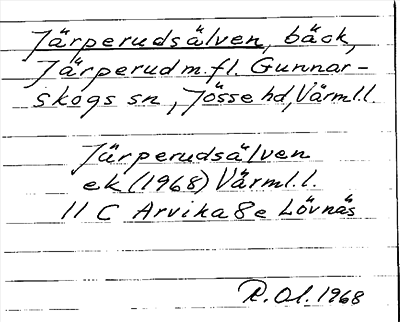 Järperudsälven, bäck,
Järperud m.fl. Gunnar-
skogs sn, Jösse hd, Värml.l.
Järperudsälven
ek (1968) Värml.l.
11 C Arvika 8e Lövnäs
R.Ol. 1968